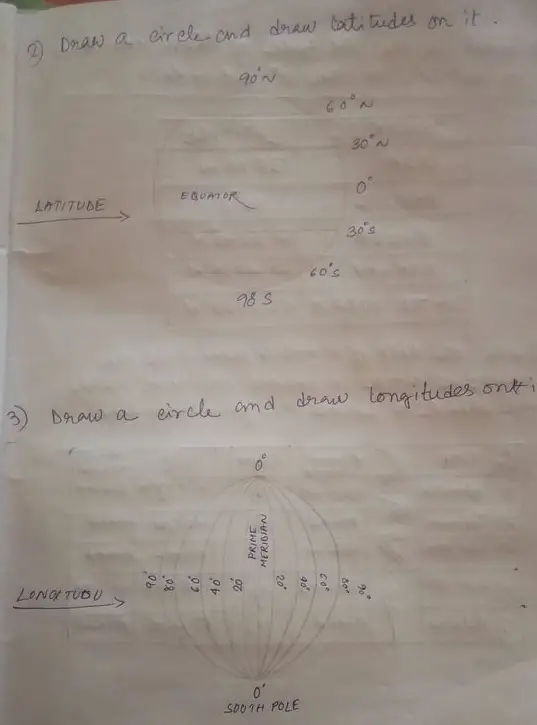 2) Draw a circle and draw latitudes on it.
90°N
60°N
30°N
0°
EQUATOR
LATITUDE
30°S
60°S
90°S
3) Draw a circle and draw longitudes on
0°
PRIME
MERIDIAN
90° 80° 60° 40° 20° 20° 40° 60° 80° 90°
LONGITUDU
0°
SOUTH POLE